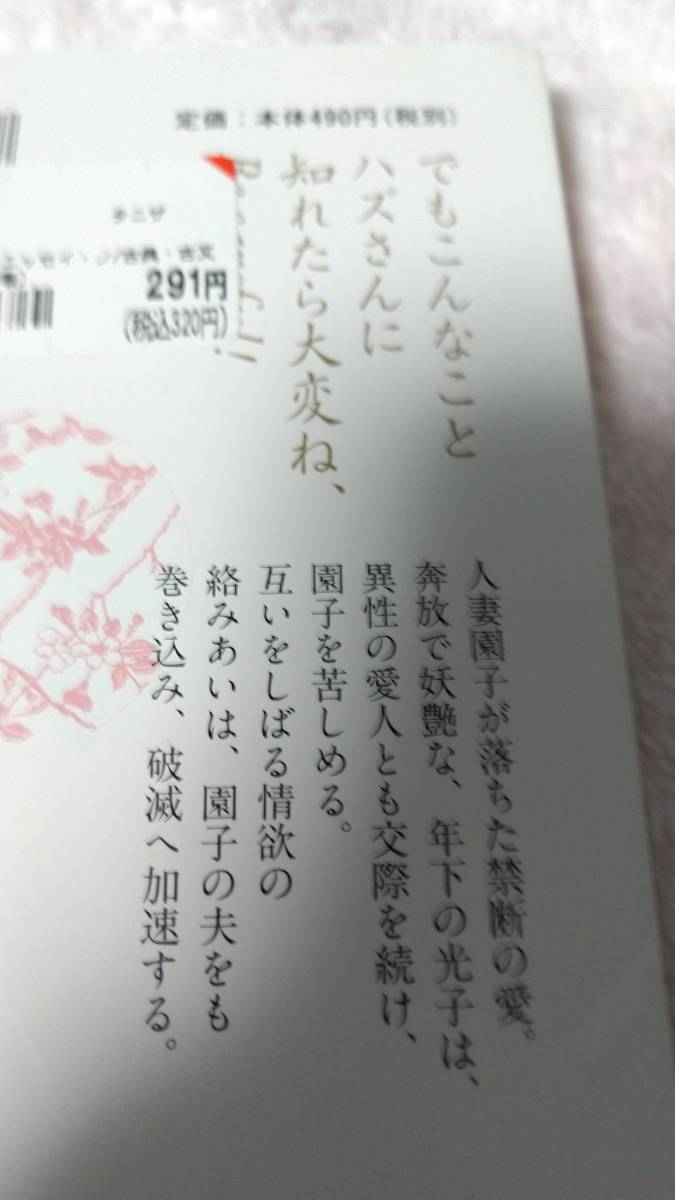 定価:本体490円(税別)
でもこんなこと
ハズさんに
知れたら大変ね、
タニザ
古典・古文
291円
(税込320円)
人妻園子が落ちた禁断の愛。
奔放で妖艶な、年下の光子は、
異性の愛人とも交際を続け、
園子を苦しめる。
互いをしばる情欲の
絡みあいは、園子の夫をも
巻き込み、破滅へ加速する。